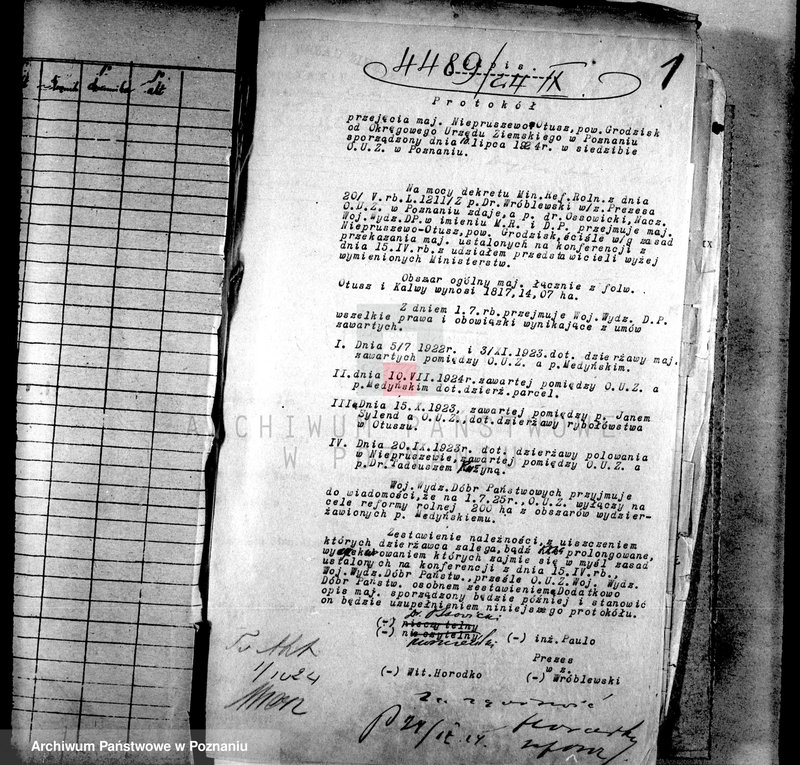 4489/24 IX
1
Odpis.
Protokół
przejęcia maj. Niepruszewo-Otusz, pow. Grodzisk
od Okręgowego Urzędu Ziemskiego w Poznaniu
sporządzony dnia lipca 1924r. w siedzibie
O.U.Z. w Poznaniu.
Na mocy dekretu Min.Ref.Roln.z dnia
20/ V.rb.L.1211/Z p.Dr.Wróblewski w/z.Prezesa
O.U.Z. w Poznaniu zdaje,a p. dr.Ossowicki,Nacz.
Woj.Wydz.DP.w imieniu M.R. i D.P. przejmuje maj.
Niepruszewo-Otusz,pow. Grodzisk,ściśle w/g zasad
przekazania maj. ustalonych na konferencji z
dnia 15.IV.rb.z udziałem przedstawicieli wyżej
wymienionych Ministerstw.
Obszar ogólny maj. łącznie z folw.
Otusz i Kalwy wynosi 1817,14,07 ha.
Z dniem 1.7.rb.przejmuje Woj.Wydz. D.P.
wszelkie prawa i obowiązki wynikające z umów
zawartych.
I. Dnia 5/7 1922r. i 3/XI.1923.dot. dzierżawy maj.
zawartych pomiędzy O.U.Z. a p.Medyńskim.
II.dnia 10.VII.1924r.zawartej pomiędzy O.U.Z. a
p.Medyńskim dot.dzierż.parcel.
III.Dnia 15.X.1923, zawartej pomiędzy p. Janem
Sylend a O.U.Z. dot.dzierżawy rybołówstwa
w Otuszu.
IV. Dnia 20.IX.1923r. dot. dzierżawy polowania
w Niepruszewie,zawartej pomiędzy O.U.Z. a
p.Dr.Tadeuszem
Woj.Wydz.Dóbr Państwowych przyjmuje
do wiadomości,że na 1.7.25r.,O.U.Z. wyłączy na
cele reformy rolnej 200 ha z obszarów wydzier-
żawionych p. Medyńskiemu.
Zestawienie należności,z uiszczeniem
których dzierżawca zalega,bądź prolongowane,
wyegzekwowaniem których zajmie się w myśl zasad
ustalonych na konferencji z dnia 15.IV.rb.,
Woj.Wydz.Dóbr Państw.,prześle O.U.Z.Woj. Wydz.
Dóbr Państw. osobnem zestawieniem.Dodatkowo
opis maj. sporządzony będzie później i stanowić
on będzie uzupełnieniem niniejszego protokółu.
(-) nieczytelny
(-) nieczytelny (-) inż.Paulo
Prezes
w z.
(-) Wit.Horodko (-) Wróblewski
1/10 24
Za zgodność
P 24/IX.24
ARCHIWUM PAŃSTWOWE
W POZNANIU
Archiwum Państwowe w Poznaniu